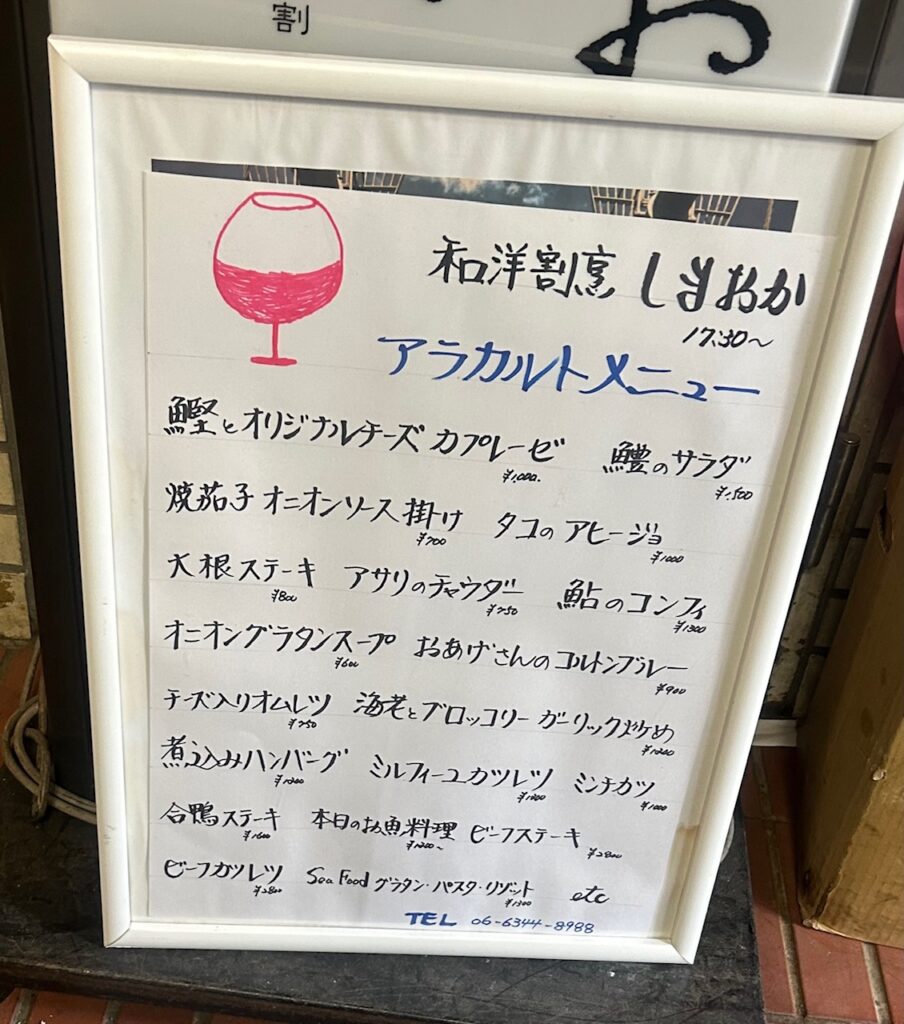 割
お
和洋割烹 しまおか
17:30〜
アラカルトメニュー
鰹とオリジナルチーズ カプレーゼ ¥1,000. 鱧のサラダ ¥1,500
焼茄子 オニオンソース掛け ¥700 タコのアヒージョ ¥1000
大根ステーキ ¥800 アサリのチャウダー ¥750 鮎のコンフィ ¥1300
オニオングラタンスープ ¥600 おあげさんのコルドンブルー ¥900
チーズ入りオムレツ ¥750 海老とブロッコリー ガーリック炒め ¥1200
煮込みハンバーグ ¥1200 ミルフィーユカツレツ ミンチカツ ¥1000
合鴨ステーキ ¥1600 本日のお魚料理 ¥1200〜 ビーフステーキ ¥2800
ビーフカツレツ ¥2800 Sea Food グラタン・パスタ・リゾット ¥1300 etc
TEL 06-6344-8988